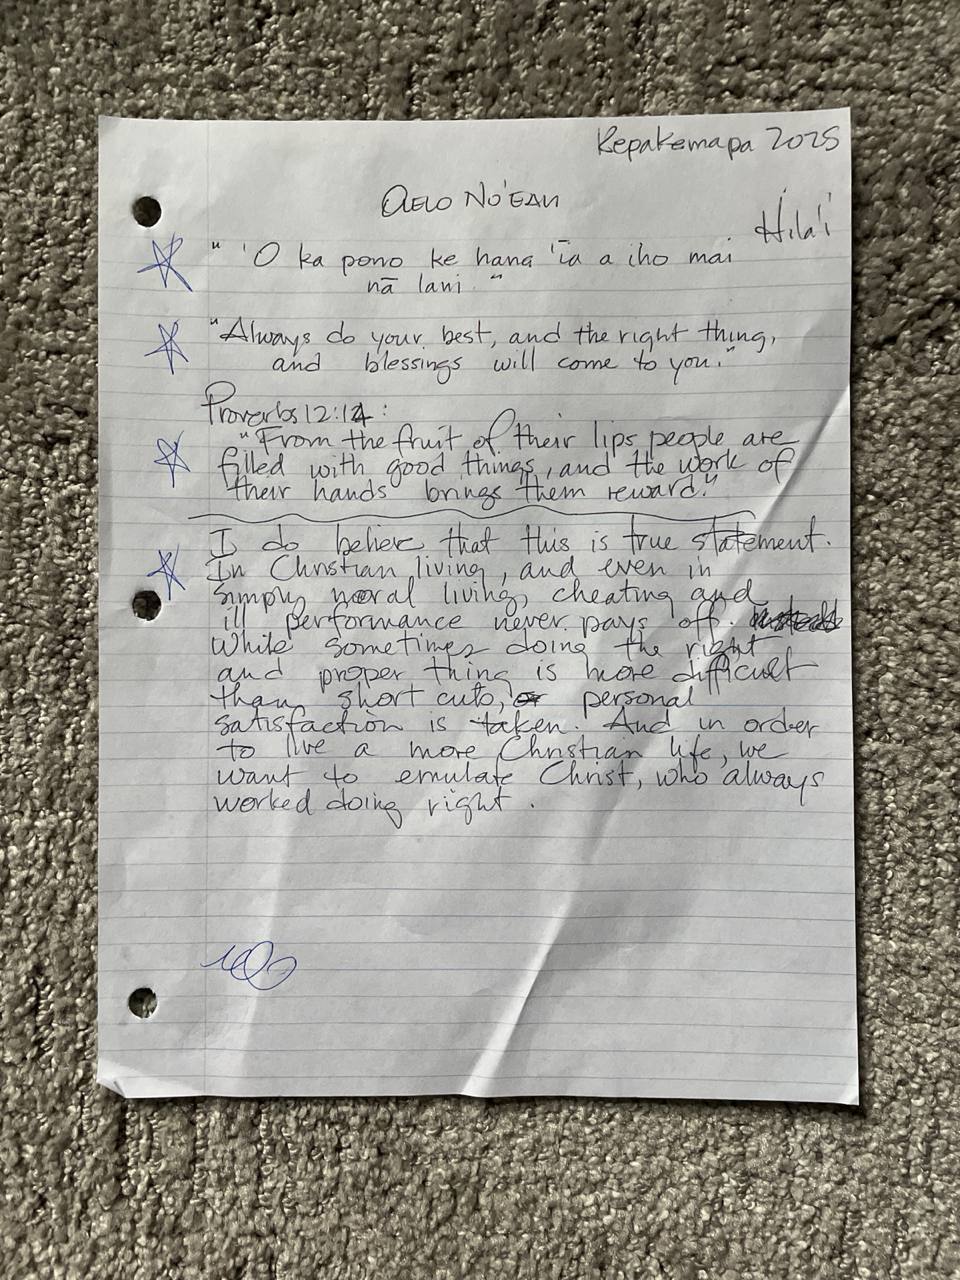 Kepakemapa 2025
Olelo No'eau
Hila'i
" 'O ka pono ke hana 'īa a iho mai
nā lani. "
"Always do your best, and the right thing,
and blessings will come to you."
Proverbs 12:14:
"From the fruit of their lips people are
filled with good things, and the work of
their hands brings them reward."
I do believe that this is true statement.
In Christian living, and even in
simply moral living, cheating and
ill performance never pays off.
While sometimes doing the right
and proper thing is more difficult
than short cuts, personal
satisfaction is taken. And in order
to live a more Christian life, we
want to emulate Christ, who always
worked doing right.